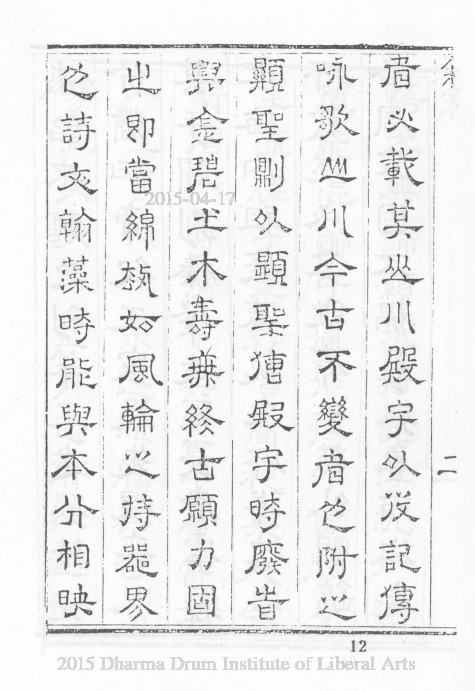 二
者必載其山川殿宇以及記傳
咏歌山川今古不變者也附之
顯聖則以顯聖僧殿宇時廢旹
興金碧土木壽無終古願力固
之即當綿執如風輪之持器界
也詩文翰藻時能與本分相映
2015-04-17
12
2015 Dharma Drum Institute of Liberal Arts